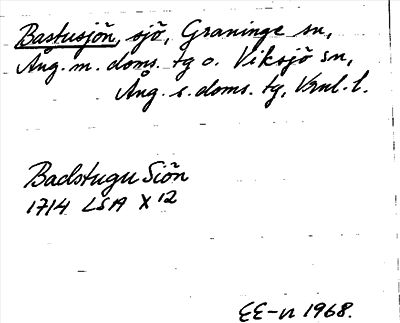 Bastusjön, sjö, Graninge sn,
Ång. m. doms. tg o. Viksjö sn,
Ång. s. doms. tg, Vnl. l.
Badstugu Siön
1714 LSA X 12
EE-n 1968.